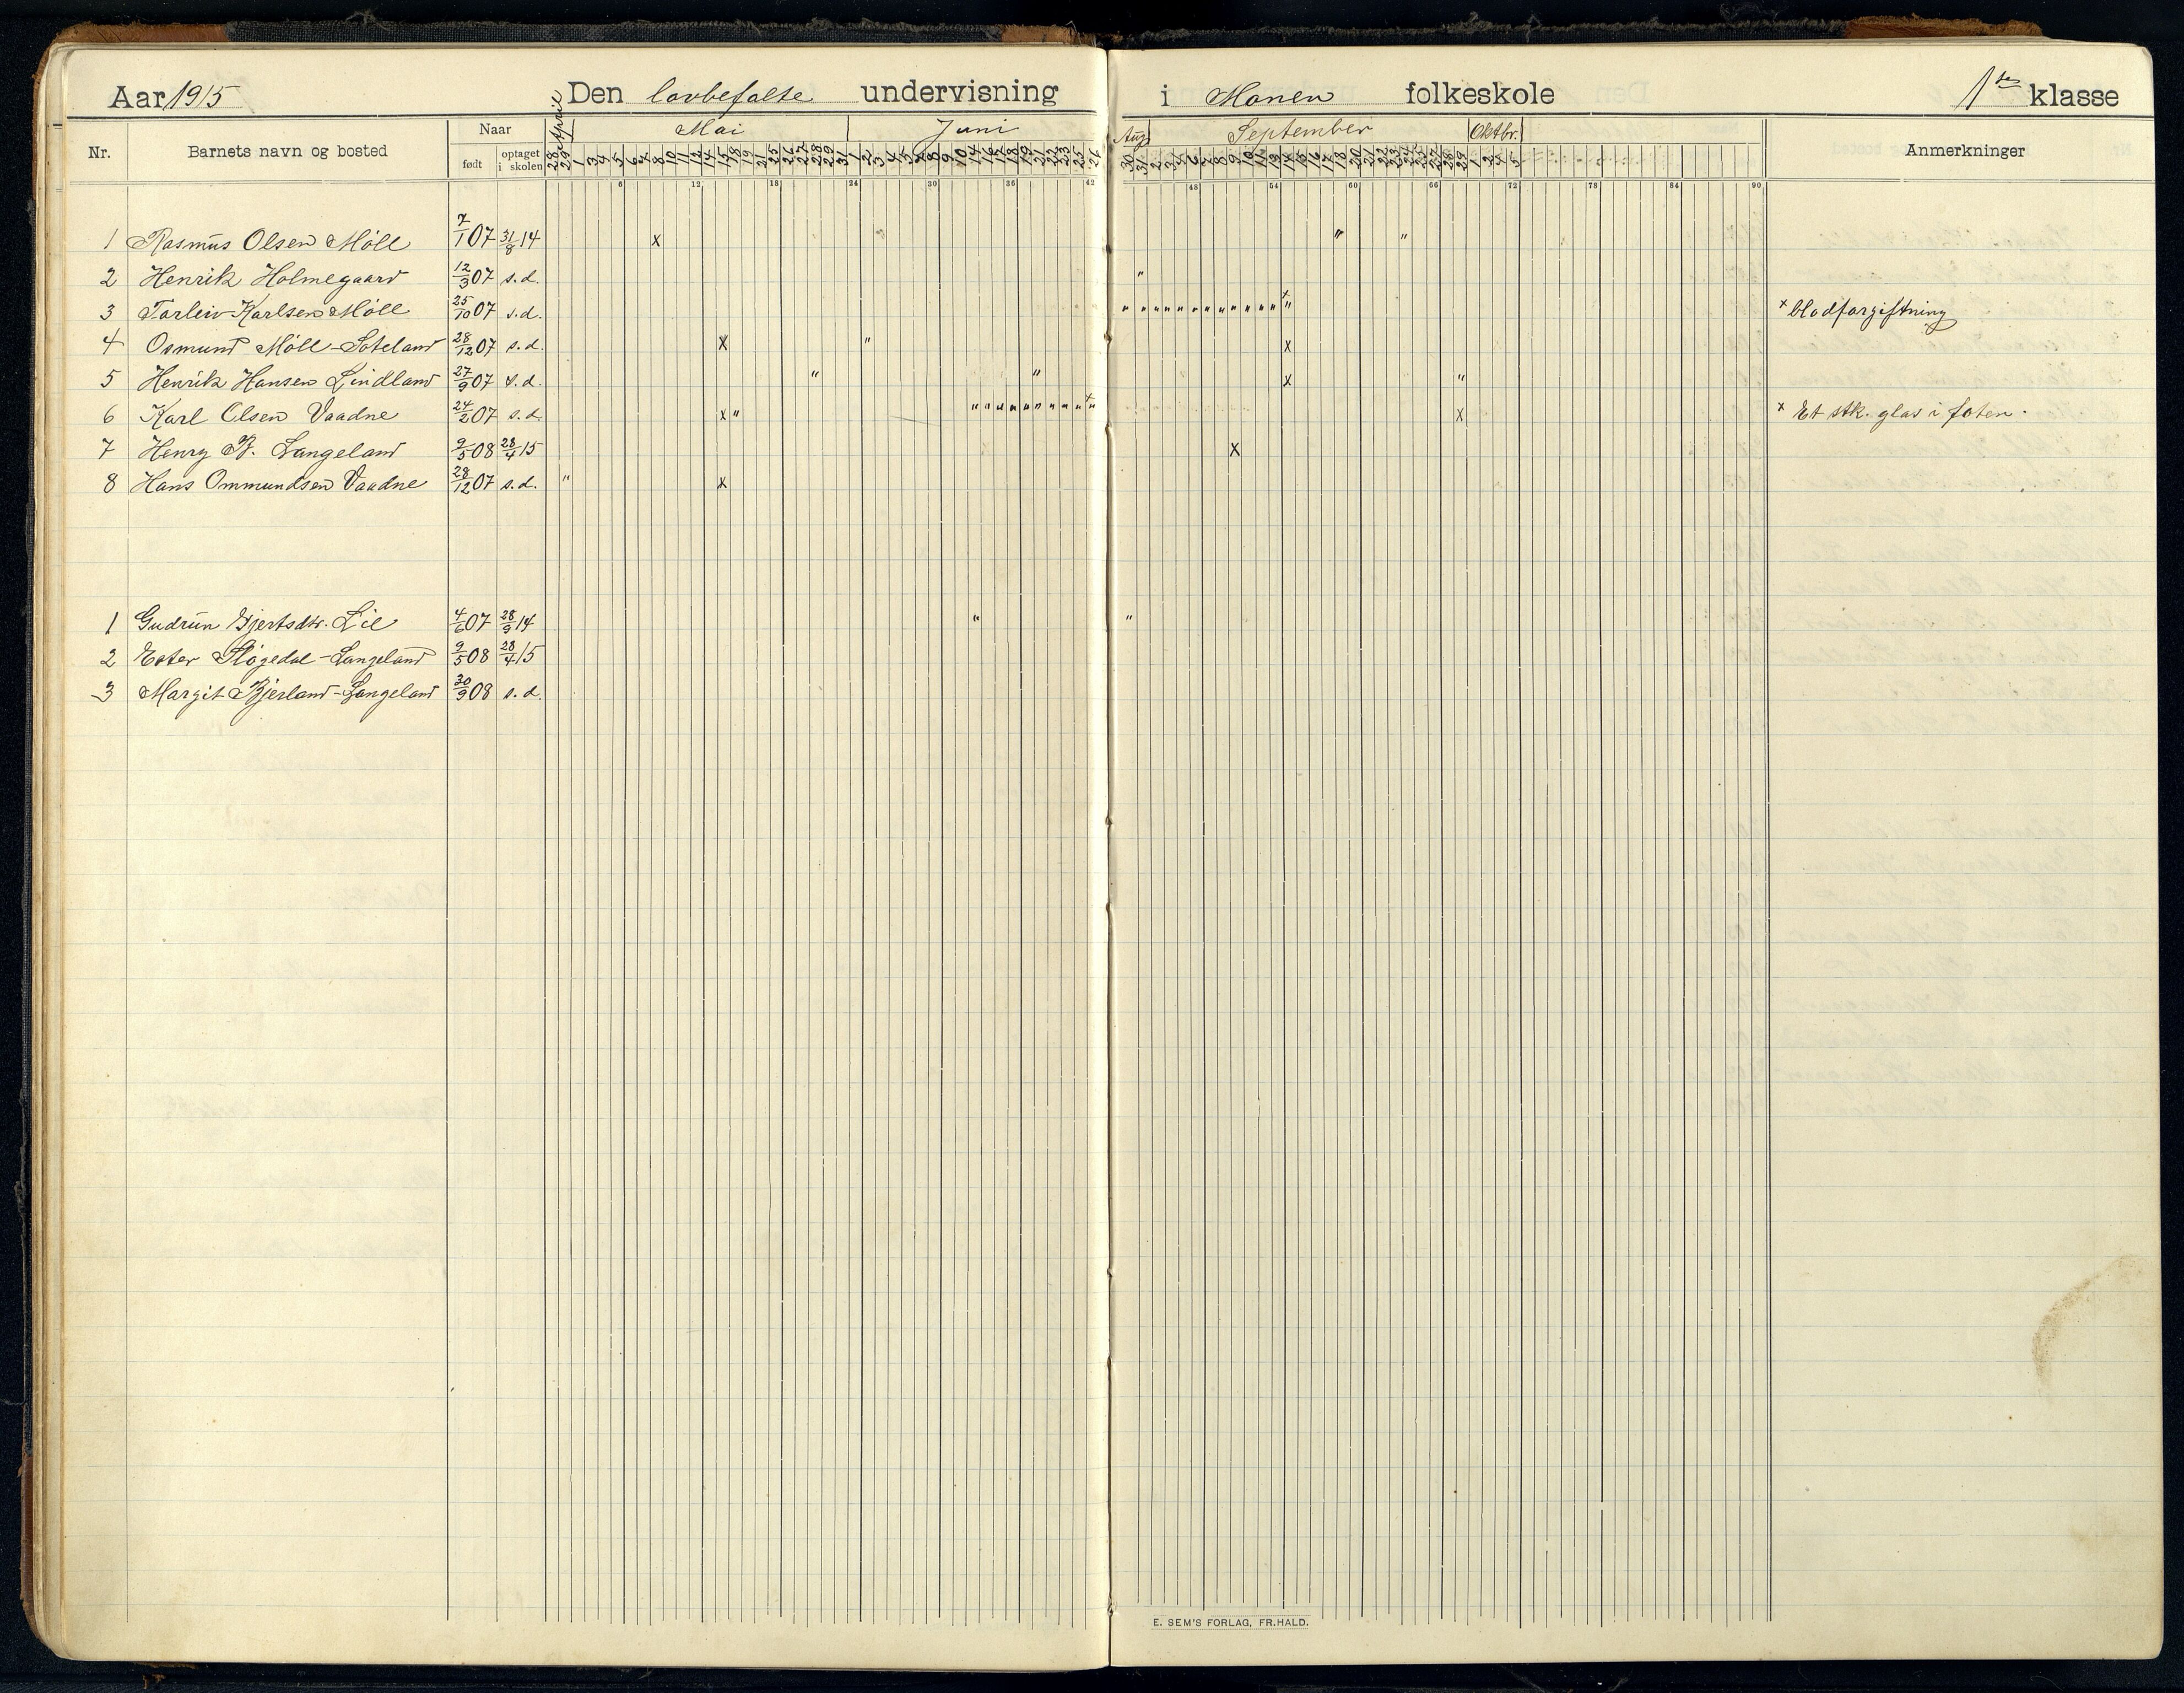 Aar 1915 Den lovbefalte undervisning i Monen folkeskole 1ste klasse
Nr. Barnets navn og bosted Naar født optaget i skolen April Mai Juni Aug. September Oktbr. Anmerkninger
28 29 1 3 4 5 6 7 8 10 11 12 14 15 18 19 21 25 26 27 28 29 31 1 2 3 4 5 7 8 9 10 14 16 17 18 19 21 22 23 25 26 30 31 2 3 4 6 7 8 9 10 11 13 14 15 16 17 18 20 21 22 23 24 25 27 28 29 1 2 4 5
6 12 18 24 30 36 42 48 54 60 66 72 78 84 90
1 Rasmus Olsen Møll 7/1 07 31/8 14 x " "
2 Henrik Holmegaard 12/3 07 s.d. "
3 Torleiv Karlsen Møll 25/10 07 s.d. " " " " " " " " " " " " " x blodforgiftning
4 Osmund Møll-Soteland 28/12 07 s.d. x " x
5 Henrik Hansen Lindland 27/9 07 s.d. " " x "
6 Karl Olsen Vaadne 24/2 07 s.d. x " " " " " " " " " " " x x Et stk. glas i foten.
7 Henry B. Langeland 9/5 08 28/4 15 x
8 Hans Ommundsen Vaadne 28/12 07 s.d. " x
1 Gudrun Gjertsdtr. Lie 4/6 07 28/9 14 " "
2 Ester Fløgedal-Langeland 9/5 08 28/4 15
3 Margit Bjerland-Langeland 30/9 08 s.d.
E. SEM'S FORLAG, FR.HALD.